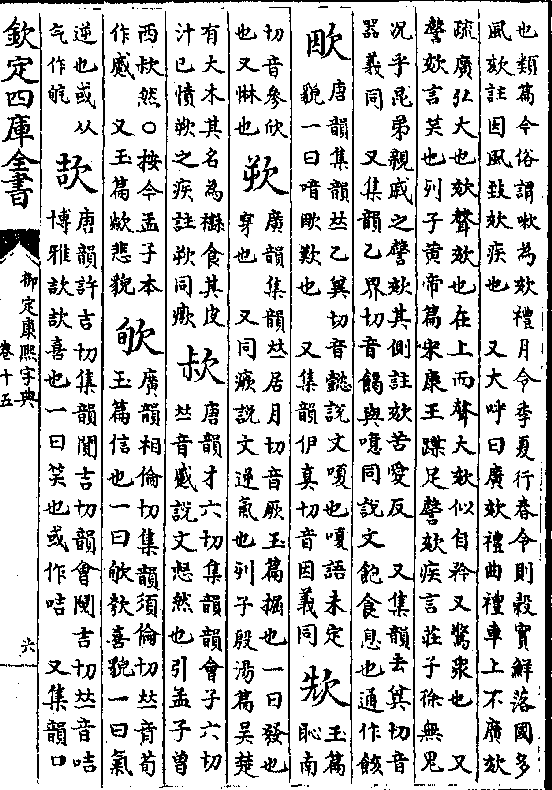 也類篇今俗謂嗽為欬禮月令季夏行春令則穀實鮮落國多
風欬註因風致欬疾也　又大呼曰廣欬禮曲禮車上不廣欬
疏廣弘大也欬聲欬也在上而聲大欬似自矜又驚衆也　又
謦欬言笑也列子黄帝篇宋康王蹀足謦欬疾言莊子徐無鬼
况乎昆弟親戚之謦欬其側註欬苦愛反　又集韻去冀切音
器義同　又集韻乙界切音餲與噫同說文飽食息也通作餩
唐韻集韻𠀤乙冀切音懿說文嚘也嚘語未定
貌一曰喑歎也　又集韻伊真切音因義同
玉篇
恥南
切音參欣
也又惏也
欮
廣韻集韻𠀤居月切音厥玉篇掘也一曰發也
穿也　又同瘚說文逆氣也列子殷湯篇吳楚
有大木其名為櫾食其皮
汁已憤欮之疾註欮同瘚
唐韻才六切集韻韻會子六切
𠀤音蹙說文惄然也引孟子曾
西然○按今孟子本
作蹙　又玉篇悲貌
廣韻相倫切集韻須倫切𠀤音荀
玉篇信也一曰喜貌一曰氣
逆也或从
气作
欯
唐韻許吉切集韻閴吉切韻會閴吉切𠀤音咭
博雅欯欯喜也一曰笑也或作咭　又集韻口
欽定四庫全書
御定康熙字典
卷十五
六